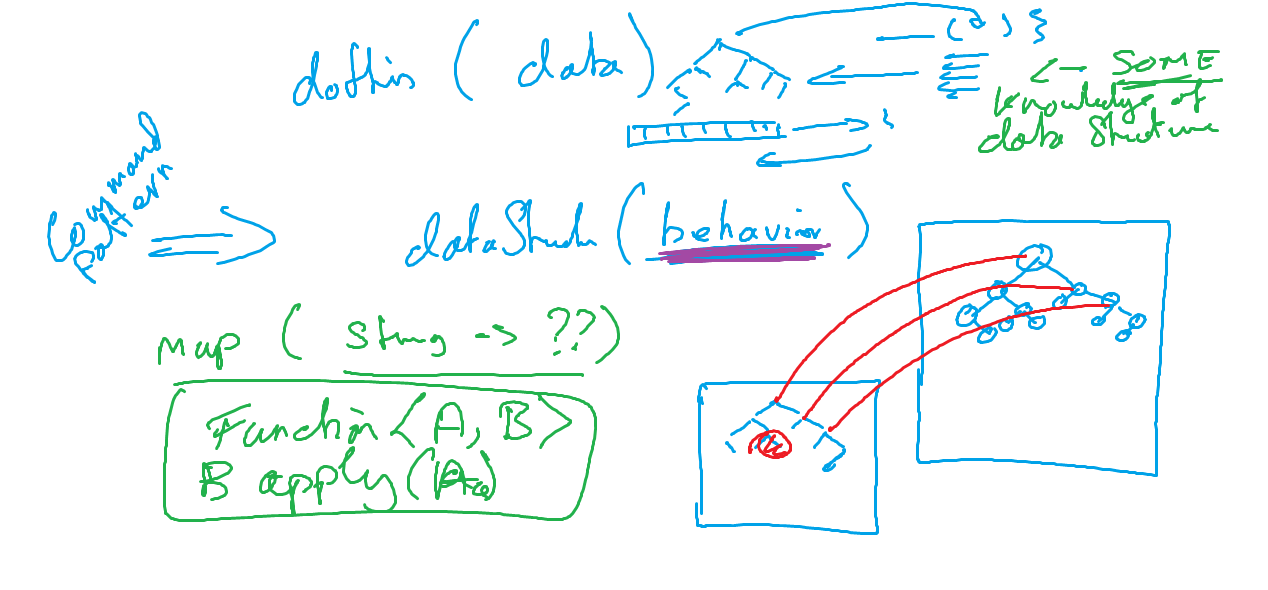 dothis ( data )
( a ) }
<- SOME
knowledge of
data structure
}
Command
pattern
=> dataStruct ( behavior )
map ( String -> ?? )
Function<A, B>
B apply(A a)